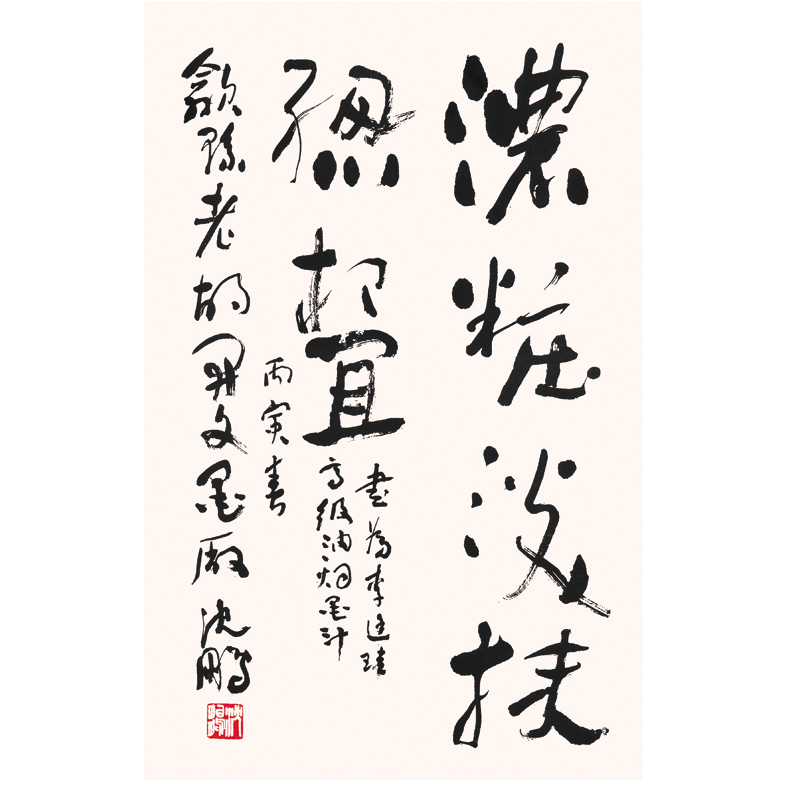 濃粧淡抹
總相宜
書為李廷珪
高級油烟墨汁
丙寅春
歙縣老胡開文墨廠 沈鵬
沈鵬